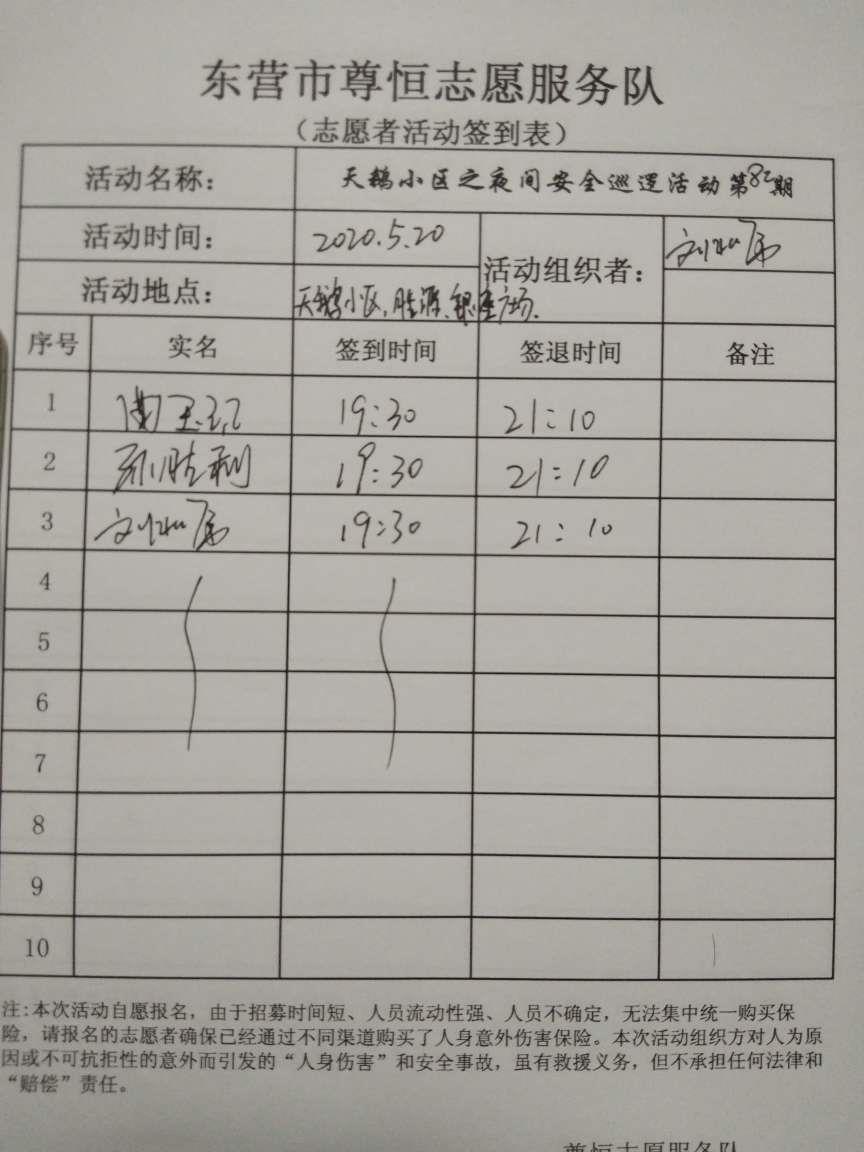 东营市尊恒志愿服务队
（志愿者活动签到表）
活动名称： 天鹅小区之夜间安全巡逻活动第82期
活动时间： 2020.5.20 活动组织者：
活动地点： 天鹅小区，胜源、银座广场.
序号 实名 签到时间 签退时间 备注
1 19:30 21:10
2 孙胜利 19:30 21:10
3 19:30 21:10
4
5
6
7
8
9
10
注:本次活动自愿报名，由于招募时间短、人员流动性强、人员不确定，无法集中统一购买保
险，请报名的志愿者确保已经通过不同渠道购买了人身意外伤害保险。本次活动组织方对人为原
因或不可抗拒性的意外而引发的“人身伤害”和安全事故，虽有救援义务，但不承担任何法律和
“赔偿”责任。
尊恒志愿服务队